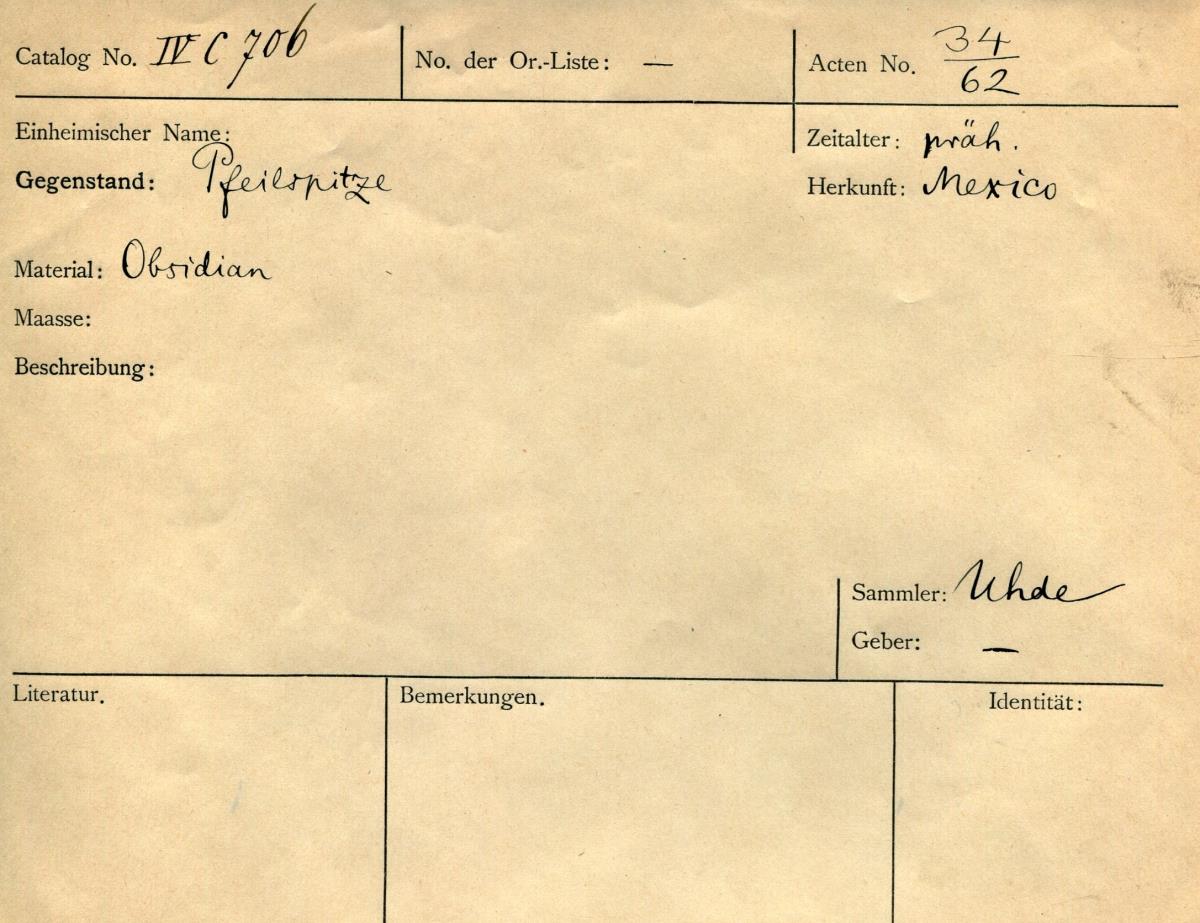 Catalog No. IV C 706 No. der Or.-Liste: — Acten No. 34/62
Einheimischer Name: Zeitalter: präh.
Gegenstand: Pfeilspitze Herkunft: Mexico
Material: Obsidian
Maasse:
Beschreibung:
Sammler: Uhde
Geber: —
Literatur. Bemerkungen. Identität: